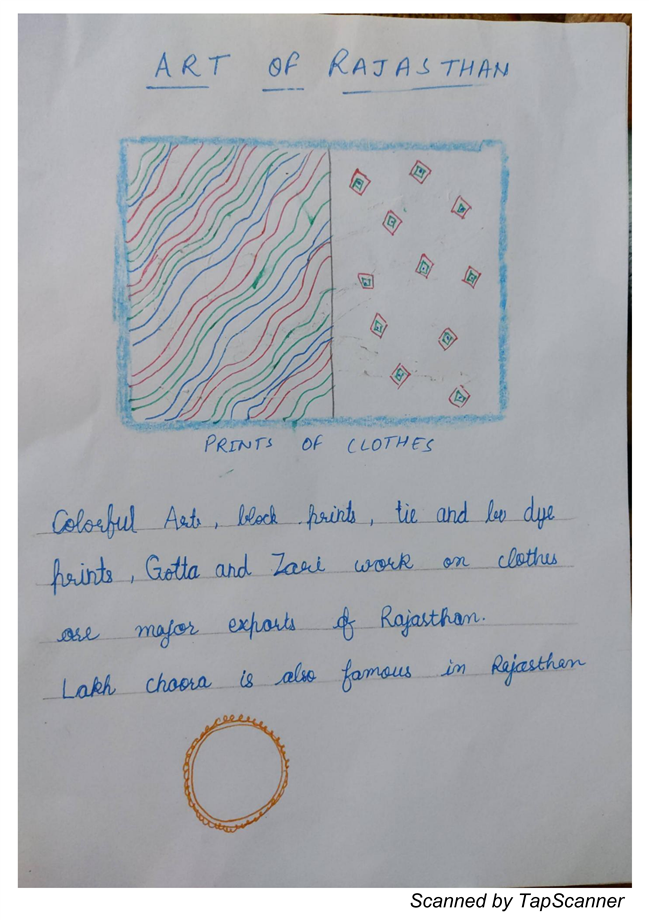 ART OF RAJASTHAN
PRINTS OF CLOTHES
Colorful Arts, block prints, tie and dye
prints, Gotta and Zari work on clothes
are major exports of Rajasthan.
Lakh choora is also famous in Rajasthan
Scanned by TapScanner